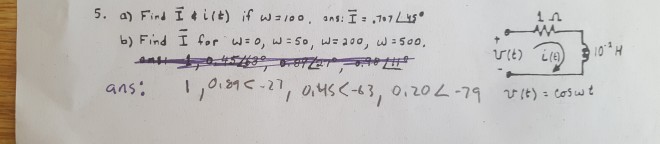 5. a) Find Ī & i(t) if w=100. ans: Ī = .707∠45°
b) Find Ī for w=0, w=50, w=200, w=500.
ans: 1, 0.45∠63°, 0.89∠27°, 0.98∠11°
ans: 1, 0.89<-27, 0.45<-63, 0.20∠-79
1 Ω
+
v(t) i(t) 10⁻² H
-
v(t) = cos wt